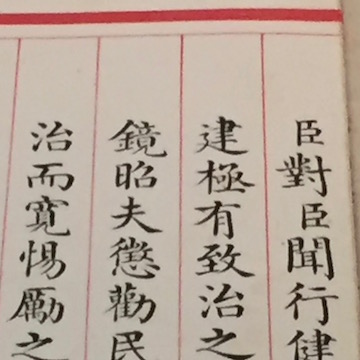 臣對臣聞行健
建極有致治之
鏡昭夫懲勸民
治而寬惕勵之